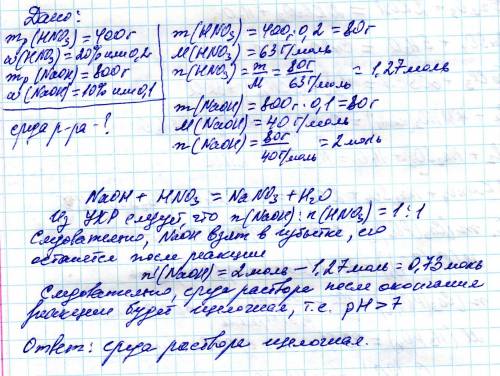 Дано:
mр(HNO₃) = 400г
ω(HNO₃) = 20% или 0,2
mр(NaOH) = 800г
ω(NaOH) = 10% или 0,1
среда р-ра - ?
m(HNO₃) = 400г · 0,2 = 80г
M(HNO₃) = 63 г/моль
n(HNO₃) = m/M = 80г/63г/моль = 1,27 моль
m(NaOH) = 800г · 0,1 = 80г
M(NaOH) = 40 г/моль
n(NaOH) = 80г/40г/моль = 2 моль
NaOH + HNO₃ = NaNO₃ + H₂O
Из УХР следует что n(NaOH) : n(HNO₃) = 1:1
Следовательно, NaOH взят в избытке, его
останется после реакции
n'(NaOH) = 2 моль – 1,27 моль = 0,73 моль
Следовательно, среда раствора после окончания
реакции будет щелочная, т.е. pH > 7
Ответ: среда раствора щелочная.